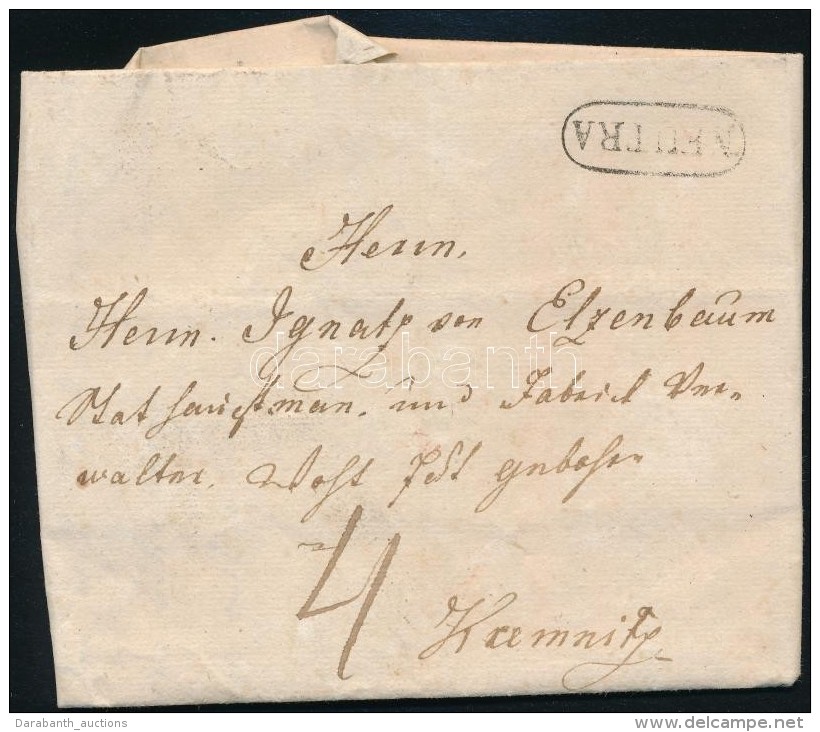 NEUTRA
Herrn,
Herrn. Ignatz von Elzenbaum
Stathauptman. und Fabrick Ver-
walter. Wohl gebohrn
4
Kremnitz
darabanth
Darabanth_auctions
www.delcampe.net